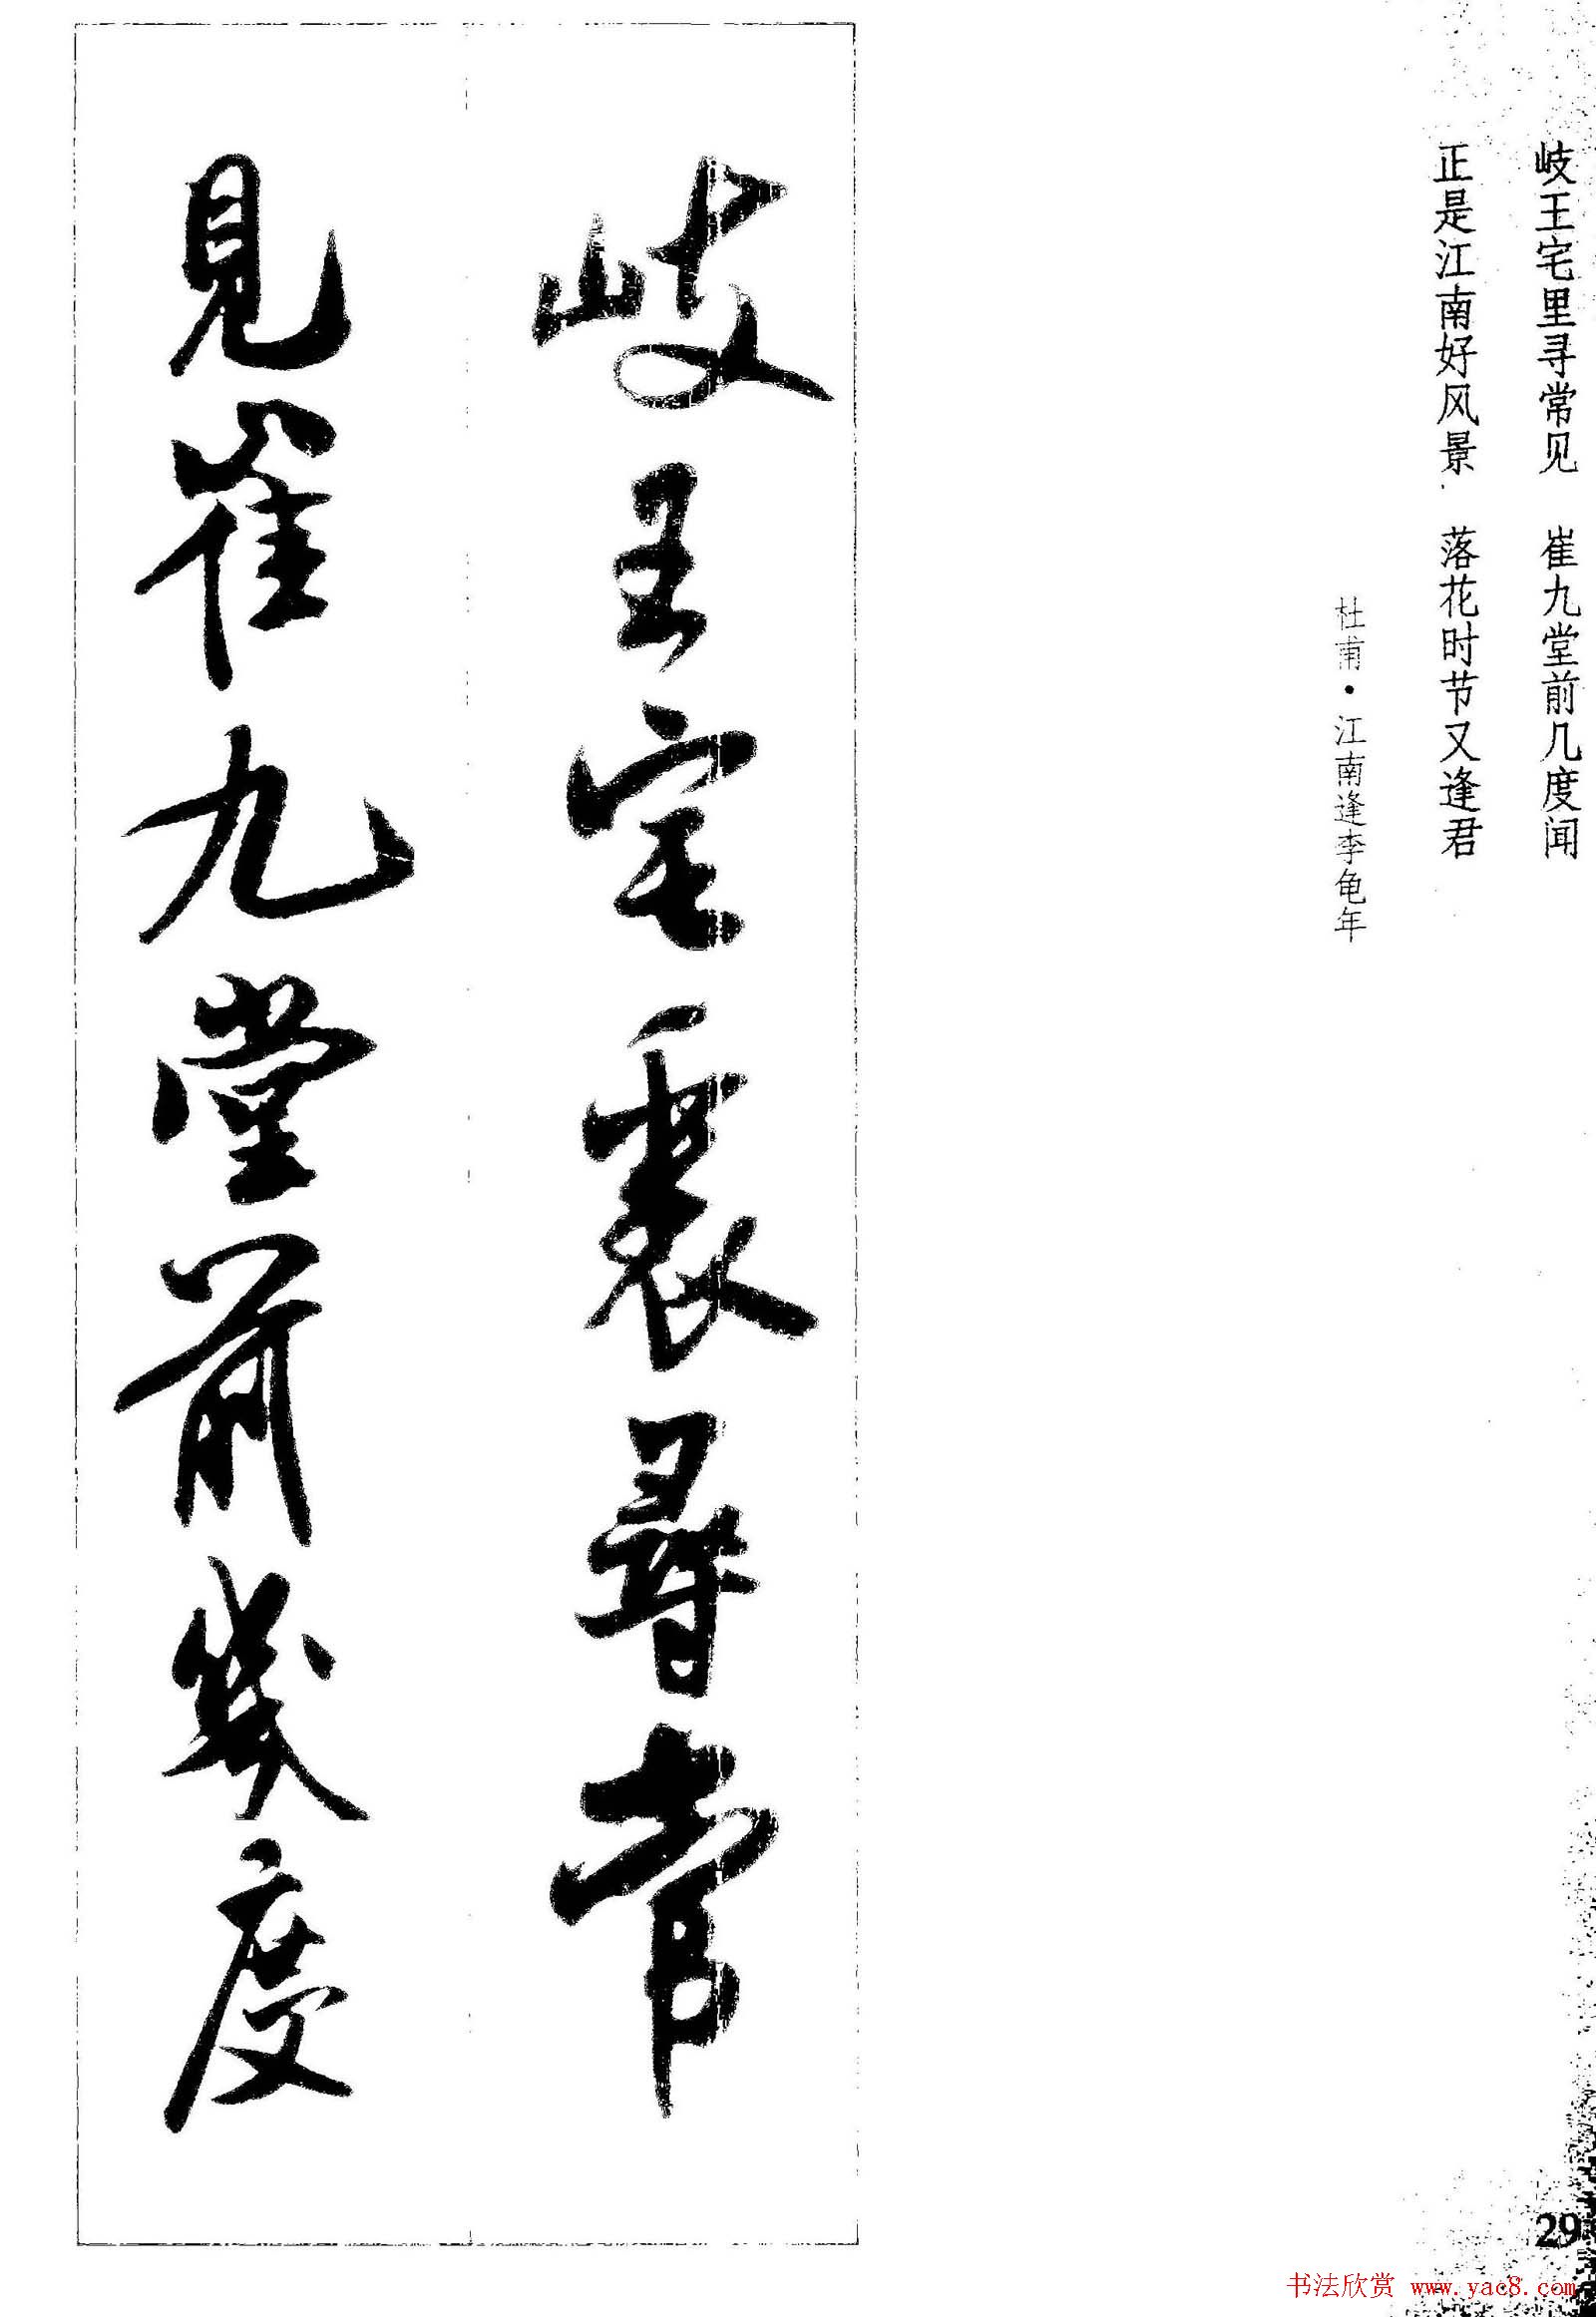 岐王宅里寻常见　崔九堂前几度闻
正是江南好风景　落花时节又逢君
杜甫·江南逢李龟年
岐王宅裏尋常
見崔九堂前幾度
29
书法欣赏 www.yac8.com